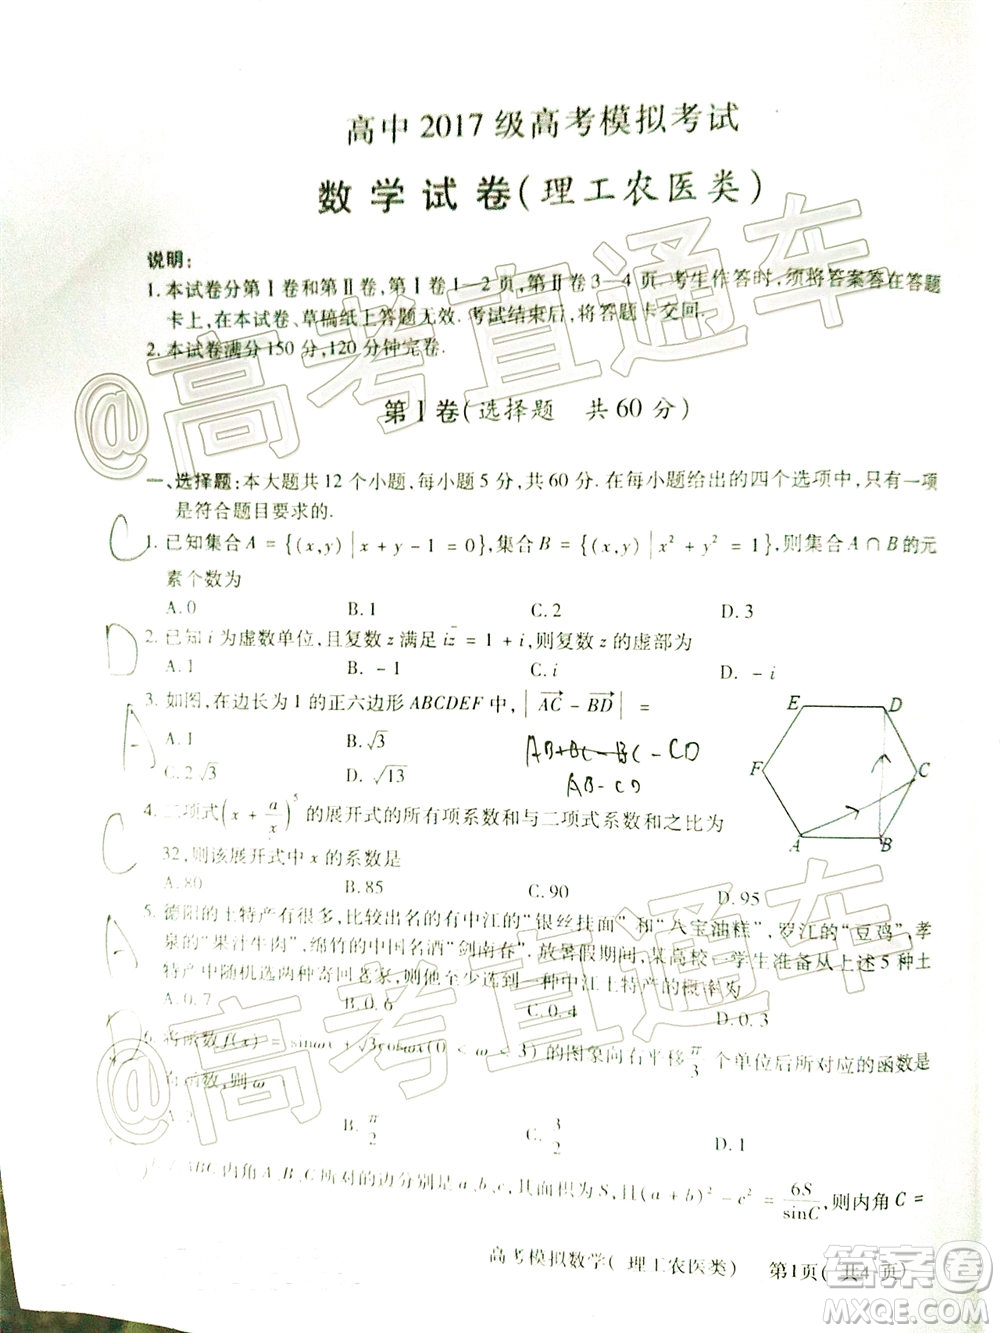 高中2017级高考模拟考试
数学试卷(理工农医类)
说明:
1.本试卷分第Ⅰ卷和第Ⅱ卷,第Ⅰ卷1—2页,第Ⅱ卷3—4页.考生作答时,须将答案答在答题
卡上,在本试卷、草稿纸上答题无效.考试结束后,将答题卡交回.
2.本试卷满分150分,120分钟完卷.
第Ⅰ卷(选择题 共60分)
一、选择题:本大题共12个小题,每小题5分,共60分.在每小题给出的四个选项中,只有一项
是符合题目要求的.
C 1.已知集合A={(x,y)|x+y-1=0},集合B={(x,y)|x²+y²=1},则集合A∩B的元
素个数为
A.0 B.1 C.2 D.3
D 2.已知i为虚数单位,且复数z满足iz̄=1+i,则复数z的虚部为
A.1 B.-1 C.i D.-i
A 3.如图,在边长为1的正六边形ABCDEF中,|AC→-BD→|=
A.1 B.√3
C.2√3 D.√13
AB+BC-BC-CD
AB-CD
E D
F C
A B
C 4.二项式(x+a/x)⁵的展开式的所有项系数和与二项式系数和之比为
32,则该展开式中x的系数是
A.80 B.85 C.90 D.95
A 5.德阳的土特产有很多,比较出名的有中江的“银丝挂面”和“八宝油糕”,罗江的“豆鸡”,孝
泉的“果汁牛肉”,绵竹的中国名酒“剑南春”.放暑假期间,某高校一学生准备从上述5种土
特产中随机选两种寄回老家,则他恰好选到一种中江土特产的概率为
A.0.7 B.0.6 C.0.4 D.0.3
6.将函数f(x)=sinωx+√3cosωx(0<ω<3)的图象向右平移π/3个单位后所对应的函数是
函数,则ω
A.2 B.π/2 C.3/2 D.1
ABC内角A、B、C所对的边分别是a、b、c,其面积为S,且(a+b)²-c²=6S/sinC,则内角C=
高考模拟数学(理工农医类) 第1页(共4页)
@高考直通车
@高考直通车
答案圈
MXQE.COM